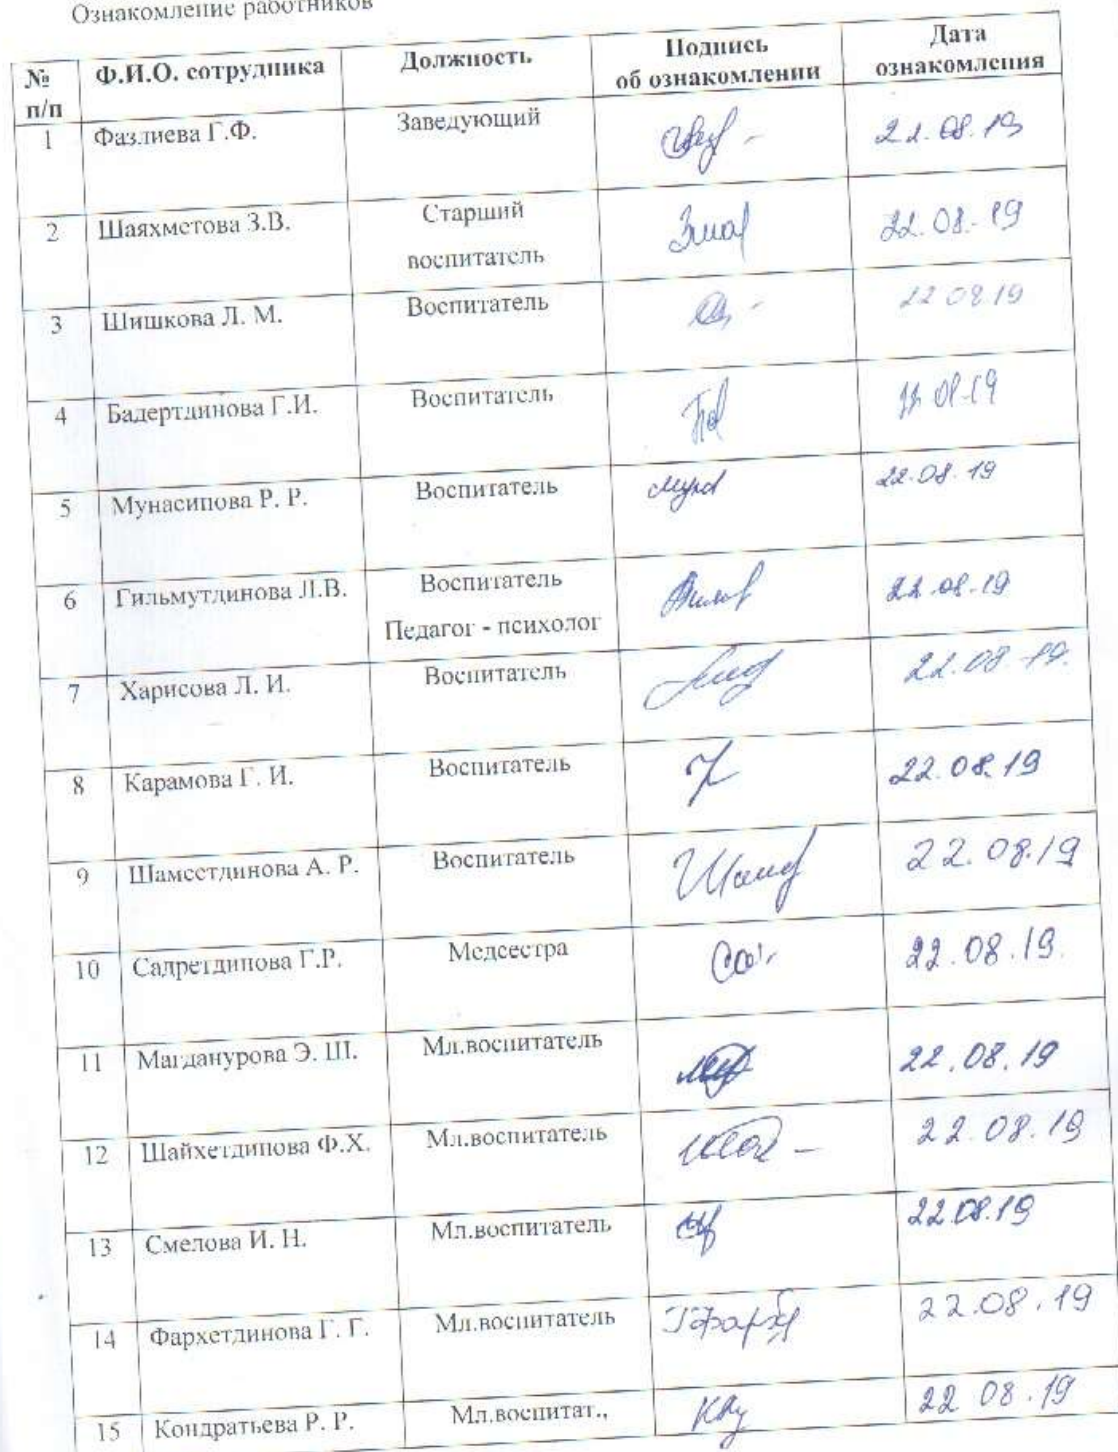 Ознакомление работников
№ п/п Ф.И.О. сотрудника Должность Подпись об ознакомлении Дата ознакомления
1 Фазлиева Г.Ф. Заведующий 22.08.19
2 Шаяхметова З.В. Старший воспитатель 22.08.19
3 Шишкова Л. М. Воспитатель 22 08 19
4 Бадертдинова Г.И. Воспитатель 22.08.19
5 Мунасипова Р. Р. Воспитатель 22.08.19
6 Гильмутдинова Л.В. Воспитатель Педагог - психолог 22.08.19
7 Харисова Л. И. Воспитатель 22.08.19.
8 Карамова Г. И. Воспитатель 22.08.19
9 Шамсетдинова А. Р. Воспитатель 22.08.19
10 Садретдинова Г.Р. Медсестра 22.08.19.
11 Магданурова Э. Ш. Мл.воспитатель 22.08.19
12 Шайхетдинова Ф.Х. Мл.воспитатель 22.08.19
13 Смелова И. Н. Мл.воспитатель 22.08.19
14 Фархетдинова Г. Г. Мл.воспитатель 22.08.19
15 Кондратьева Р. Р. Мл.воспитат., 22 08.19